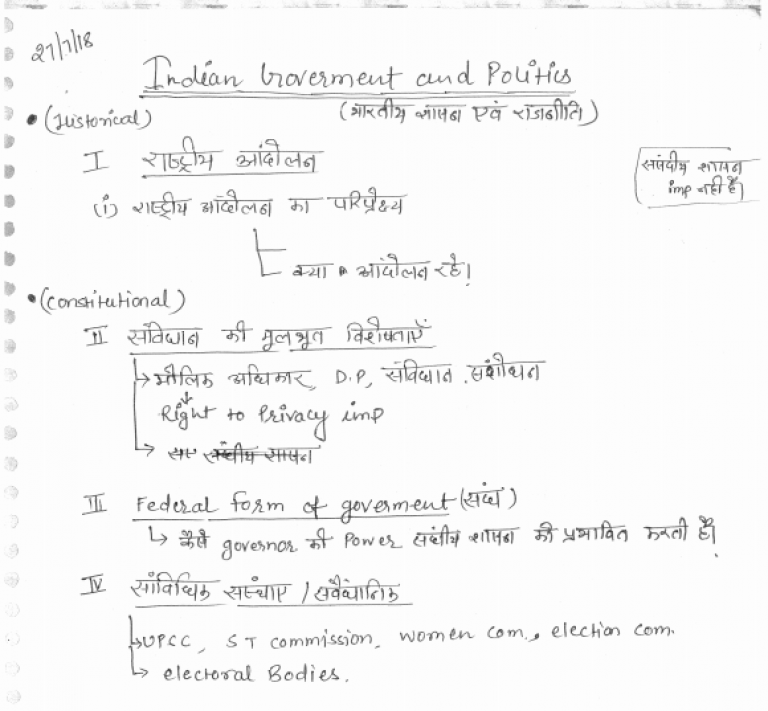 27/7/18
Indian Goverment and Politics
(भारतीय शासन एवं राजनीति)
• (Historical)
I राष्ट्रीय आंदोलन
संघीय शासन
imp नहीं है।
(i) राष्ट्रीय आंदोलन का परिप्रेक्ष्य
क्या आंदोलन रहे।
• (Constitutional)
II संविधान की मूलभूत विशेषताएँ
→ मौलिक अधिकार, D.P, संविधान संशोधन
Right to Privacy imp
→ संघीय शासन
III Federal form of goverment (संघ)
↳ कैसे governor की Power संघीय शासन को प्रभावित करती है।
IV सांविधिक संस्थाए / सवैधानिक
→ UPCC, ST commission, women com., election com.
→ electoral Bodies.